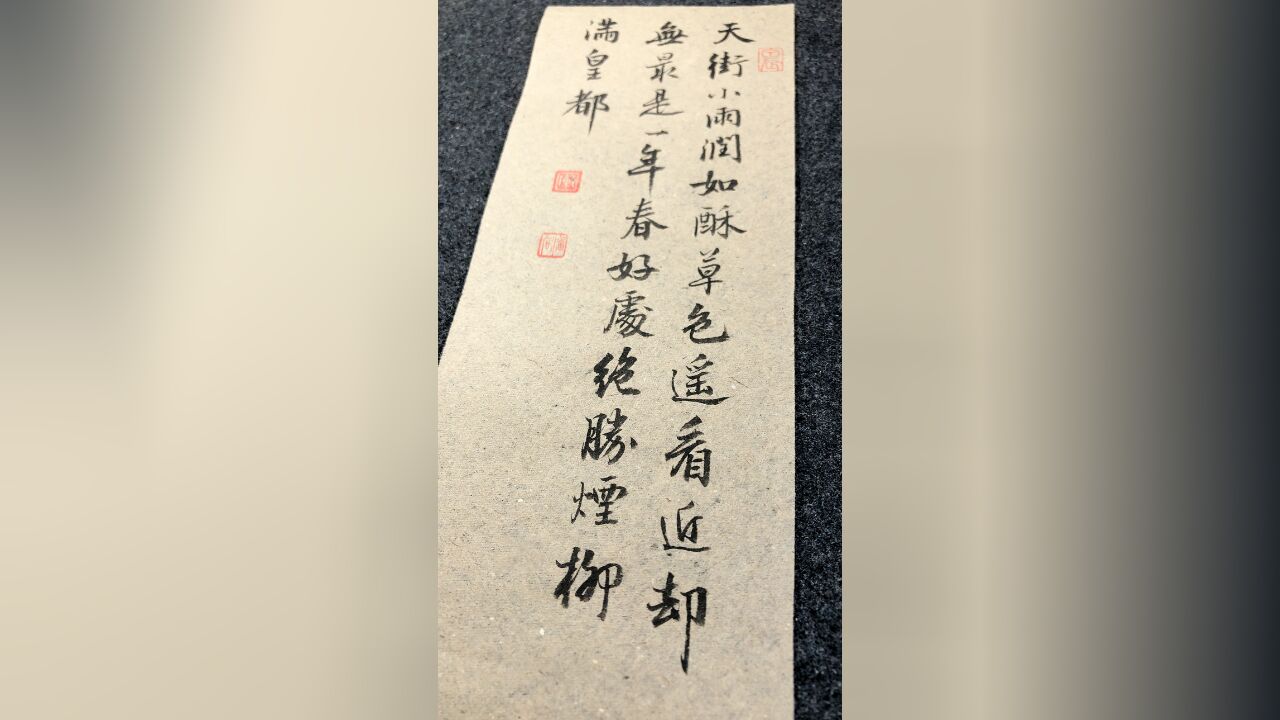 天街小雨潤如酥草色遥看近却
無最是一年春好處絶勝煙柳
満皇都